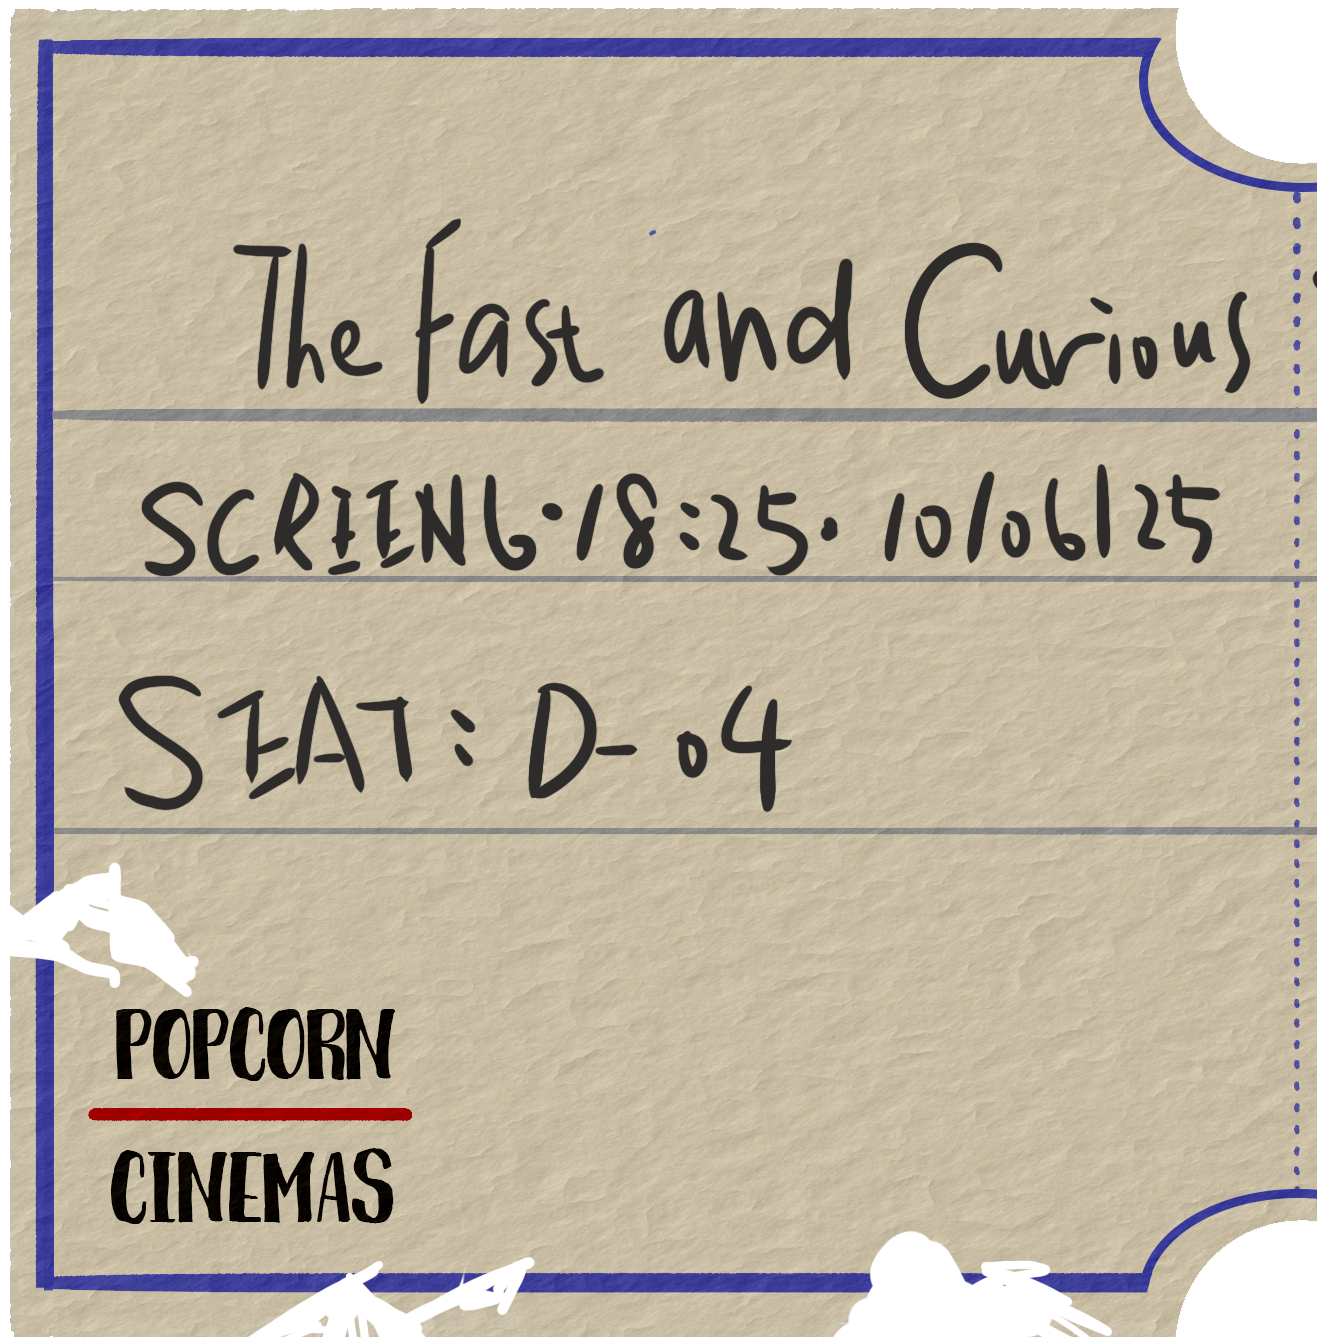 The Fast and Curious
SCREEN 6·18:25· 10/06/25
SEAT: D-04
POPCORN
CINEMAS